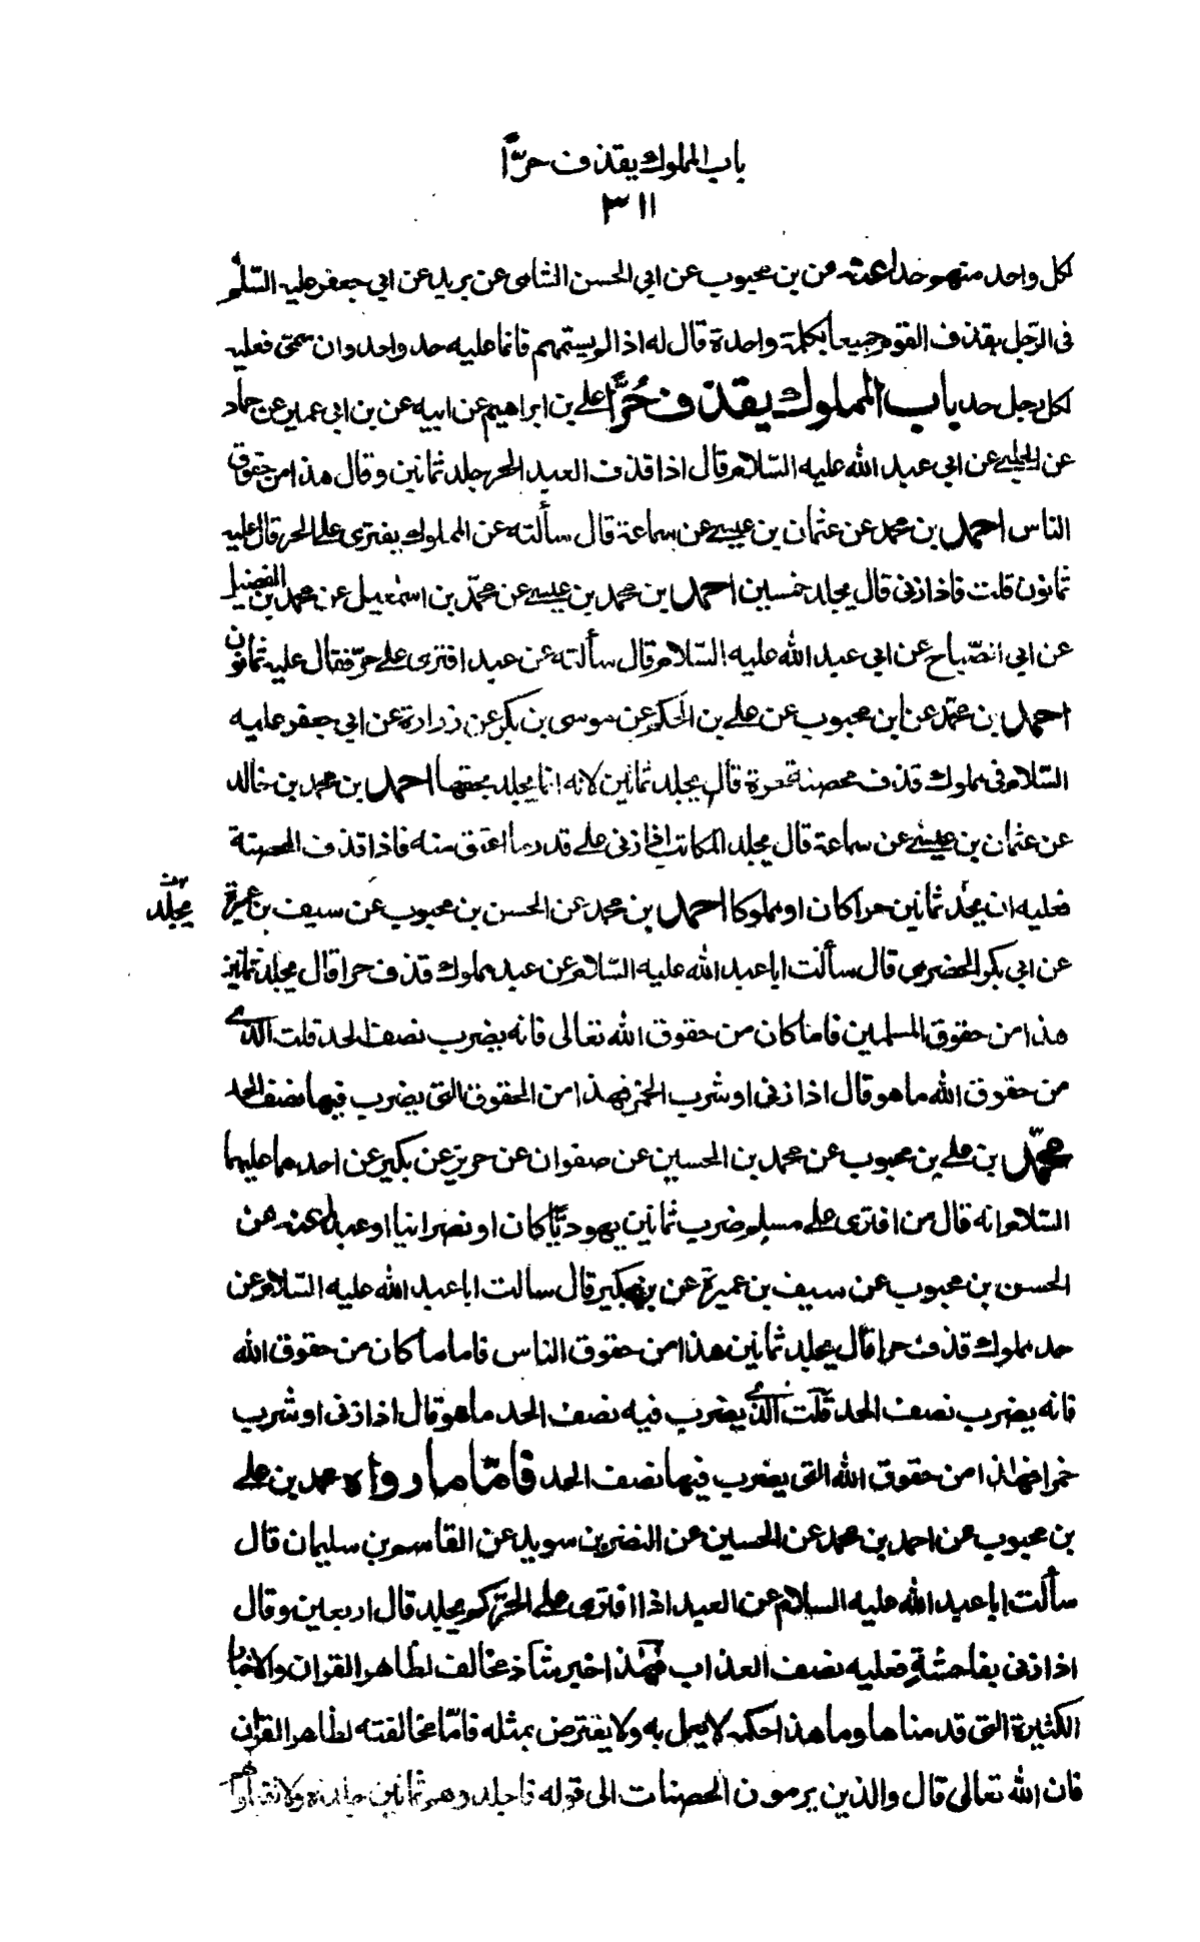 باب المملوك يقذف حرّاً
٣١١
لكل واحد منهم حدا عنه عن بن محبوب عن ابي الحسن الشامى عن بريد عن ابي جعفر عليه السّلم
فى الرّجل يقذف القوم جميعا بكلمة واحدة قال له اذا لم يسمهم فانما عليه حد واحد وان سمّى فعليه
لكل رجل حد باب المملوك يقذف حُرّاً على بن ابراهيم عن ابيه عن بن ابى عمير عن حماد
عن الحلبى عن ابي عبد الله عليه السّلام قال اذا قذف العبد الحر جلد ثمانين وقال هذا من حقوق
الناس احمد بن محمد عن عثمان بن عيسى عن سماعة قال سألته عن المملوك يفترى على الحر قال عليه
ثمانون قلت فاذا زنى قال يجلد خمسين احمد بن محمد بن عيسى عن محمّد بن اسمعيل عن محمد بن الفضيل
عن ابي الصّباح عن ابي عبد الله عليه السّلام قال سألته عن عبد افترى على حرّ فقال عليه ثمانون
احمد بن محمّد عن ابن محبوب عن على بن الحكم عن موسى بن بكر عن زرارة عن ابي جعفر عليه
السّلام فى مملوك قذف محصنة حرة قال يجلد ثمانين لانه انما يجلد بحقها احمد بن محمد بن خالد
عن عثمان بن عيسى عن سماعة قال يجلد المكاتب اذا زنى على قدر ما اعتق منه فاذا قذف المحصنة
فعليه ان يجلد ثمانين حرا كان او مملوكا احمد بن محمد عن الحسن بن محبوب عن سيف بن عميرة
يجلد
عن ابي بكر الحضرمى قال سألت ابا عبد الله عليه السّلام عن عبد مملوك قذف حرا قال يجلد ثمانين
هذا من حقوق المسلمين فاما ما كان من حقوق الله تعالى فانه يضرب نصف الحد قلت الذى
من حقوق الله ما هو قال اذا زنى او شرب الخمر فهذا من الحقوق التى يضرب فيها نصف الحد
محمّد بن على بن محبوب عن محمد بن الحسين عن صفوان عن حريز عن بكير عن احدهما عليهما
السّلام انه قال من افترى على مسلم ضرب ثمانين يهوديّا كان او نصرانيا او عبدا عنه عن
الحسن بن محبوب عن سيف بن عميرة عن بن بكير قال سالت ابا عبد الله عليه السّلام عن
حد مملوك قذف حرا قال يجلد ثمانين هذا من حقوق الناس فاما ما كان من حقوق الله
فانه يضرب نصف الحد قلت الذى يضرب فيه نصف الحد ما هو قال اذا زنى او شرب
خمرا فهذا من حقوق الله التى يضرب فيها نصف الحد فامّا ما رواه محمد بن على
بن محبوب عن احمد بن محمد عن الحسين عن النضر بن سويد عن القاسم بن سليمان قال
سألت ابا عبد الله عليه السلام عن العبد اذا افترى على الحرّ كم يجلد قال اربعين وقال
اذا زنى بفاحشة فعليه نصف العذاب فهذا خبر شاذ مخالف لظاهر القران والاخبار
الكثيرة التى قدمناها وما هذا حكمه لا يعمل به ولا يعترض بمثله فامّا مخالفته لظاهر القران
فان الله تعالى قال والذين يرمون المحصنات الى قوله فاجلدوهم ثمانين جلدة ولا تقبلوا